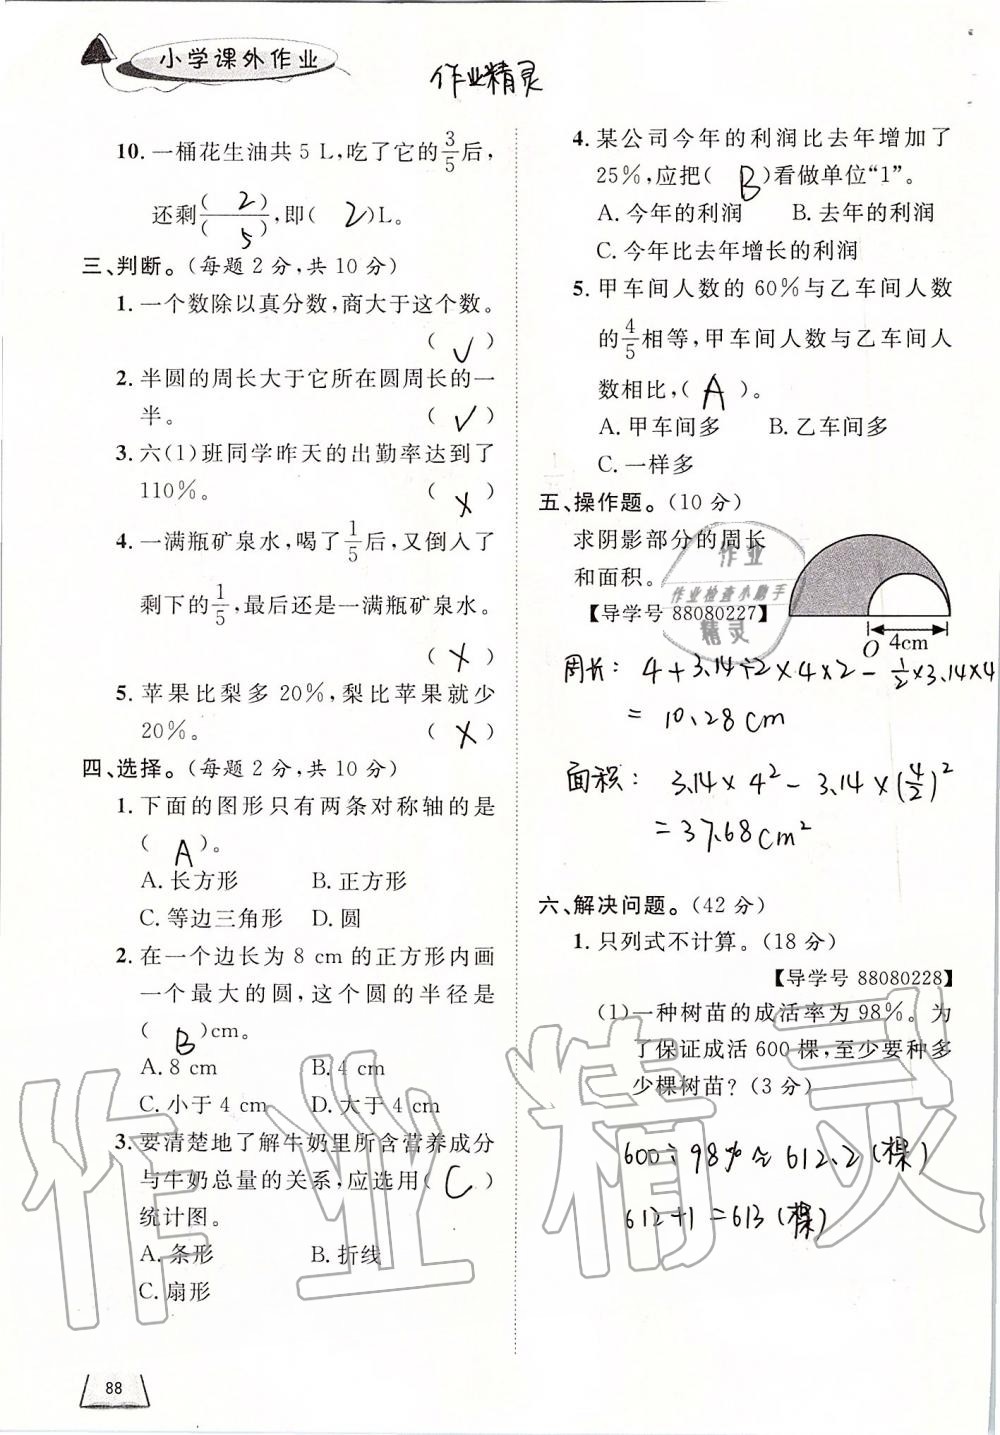 小学课外作业
作业精灵
10. 一桶花生油共 5 L,吃了它的3/5后,
还剩(2)/(5),即(2)L。
三、判断。(每题 2 分,共 10 分)
1. 一个数除以真分数,商大于这个数。
(✓)
2. 半圆的周长大于它所在圆周长的一
半。 (✓)
3. 六(1)班同学昨天的出勤率达到了
110%。 (×)
4. 一满瓶矿泉水,喝了1/5后,又倒入了
剩下的1/5,最后还是一满瓶矿泉水。
(×)
5. 苹果比梨多 20%,梨比苹果就少
20%。 (×)
四、选择。(每题 2 分,共 10 分)
1. 下面的图形只有两条对称轴的是
(A)。
A. 长方形 B. 正方形
C. 等边三角形 D. 圆
2. 在一个边长为 8 cm 的正方形内画
一个最大的圆,这个圆的半径是
(B)cm。
A. 8 cm B. 4 cm
C. 小于 4 cm D. 大于 4 cm
3. 要清楚地了解牛奶里所含营养成分
与牛奶总量的关系,应选用(C)
统计图。
A. 条形 B. 折线
C. 扇形
88
4. 某公司今年的利润比去年增加了
25%,应把(B)看做单位“1”。
A. 今年的利润 B. 去年的利润
C. 今年比去年增长的利润
5. 甲车间人数的 60%与乙车间人数
的4/5相等,甲车间人数与乙车间人
数相比,(A)。
A. 甲车间多 B. 乙车间多
C. 一样多
五、操作题。(10 分)
求阴影部分的周长
和面积。
【导学号 88080227】
O 4cm
作业
作业检查小助手
精灵
周长: 4+3.14÷2×4×2-1/2×3.14×4
=10.28cm
面积: 3.14×4²-3.14×(4/2)²
=37.68cm²
六、解决问题。(42 分)
1. 只列式不计算。(18 分)
【导学号 88080228】
(1)一种树苗的成活率为 98%。为
了保证成活 600 棵,至少要种多
少棵树苗?(3 分)
600÷98%≈612.2(棵)
612+1=613(棵)
作业精灵